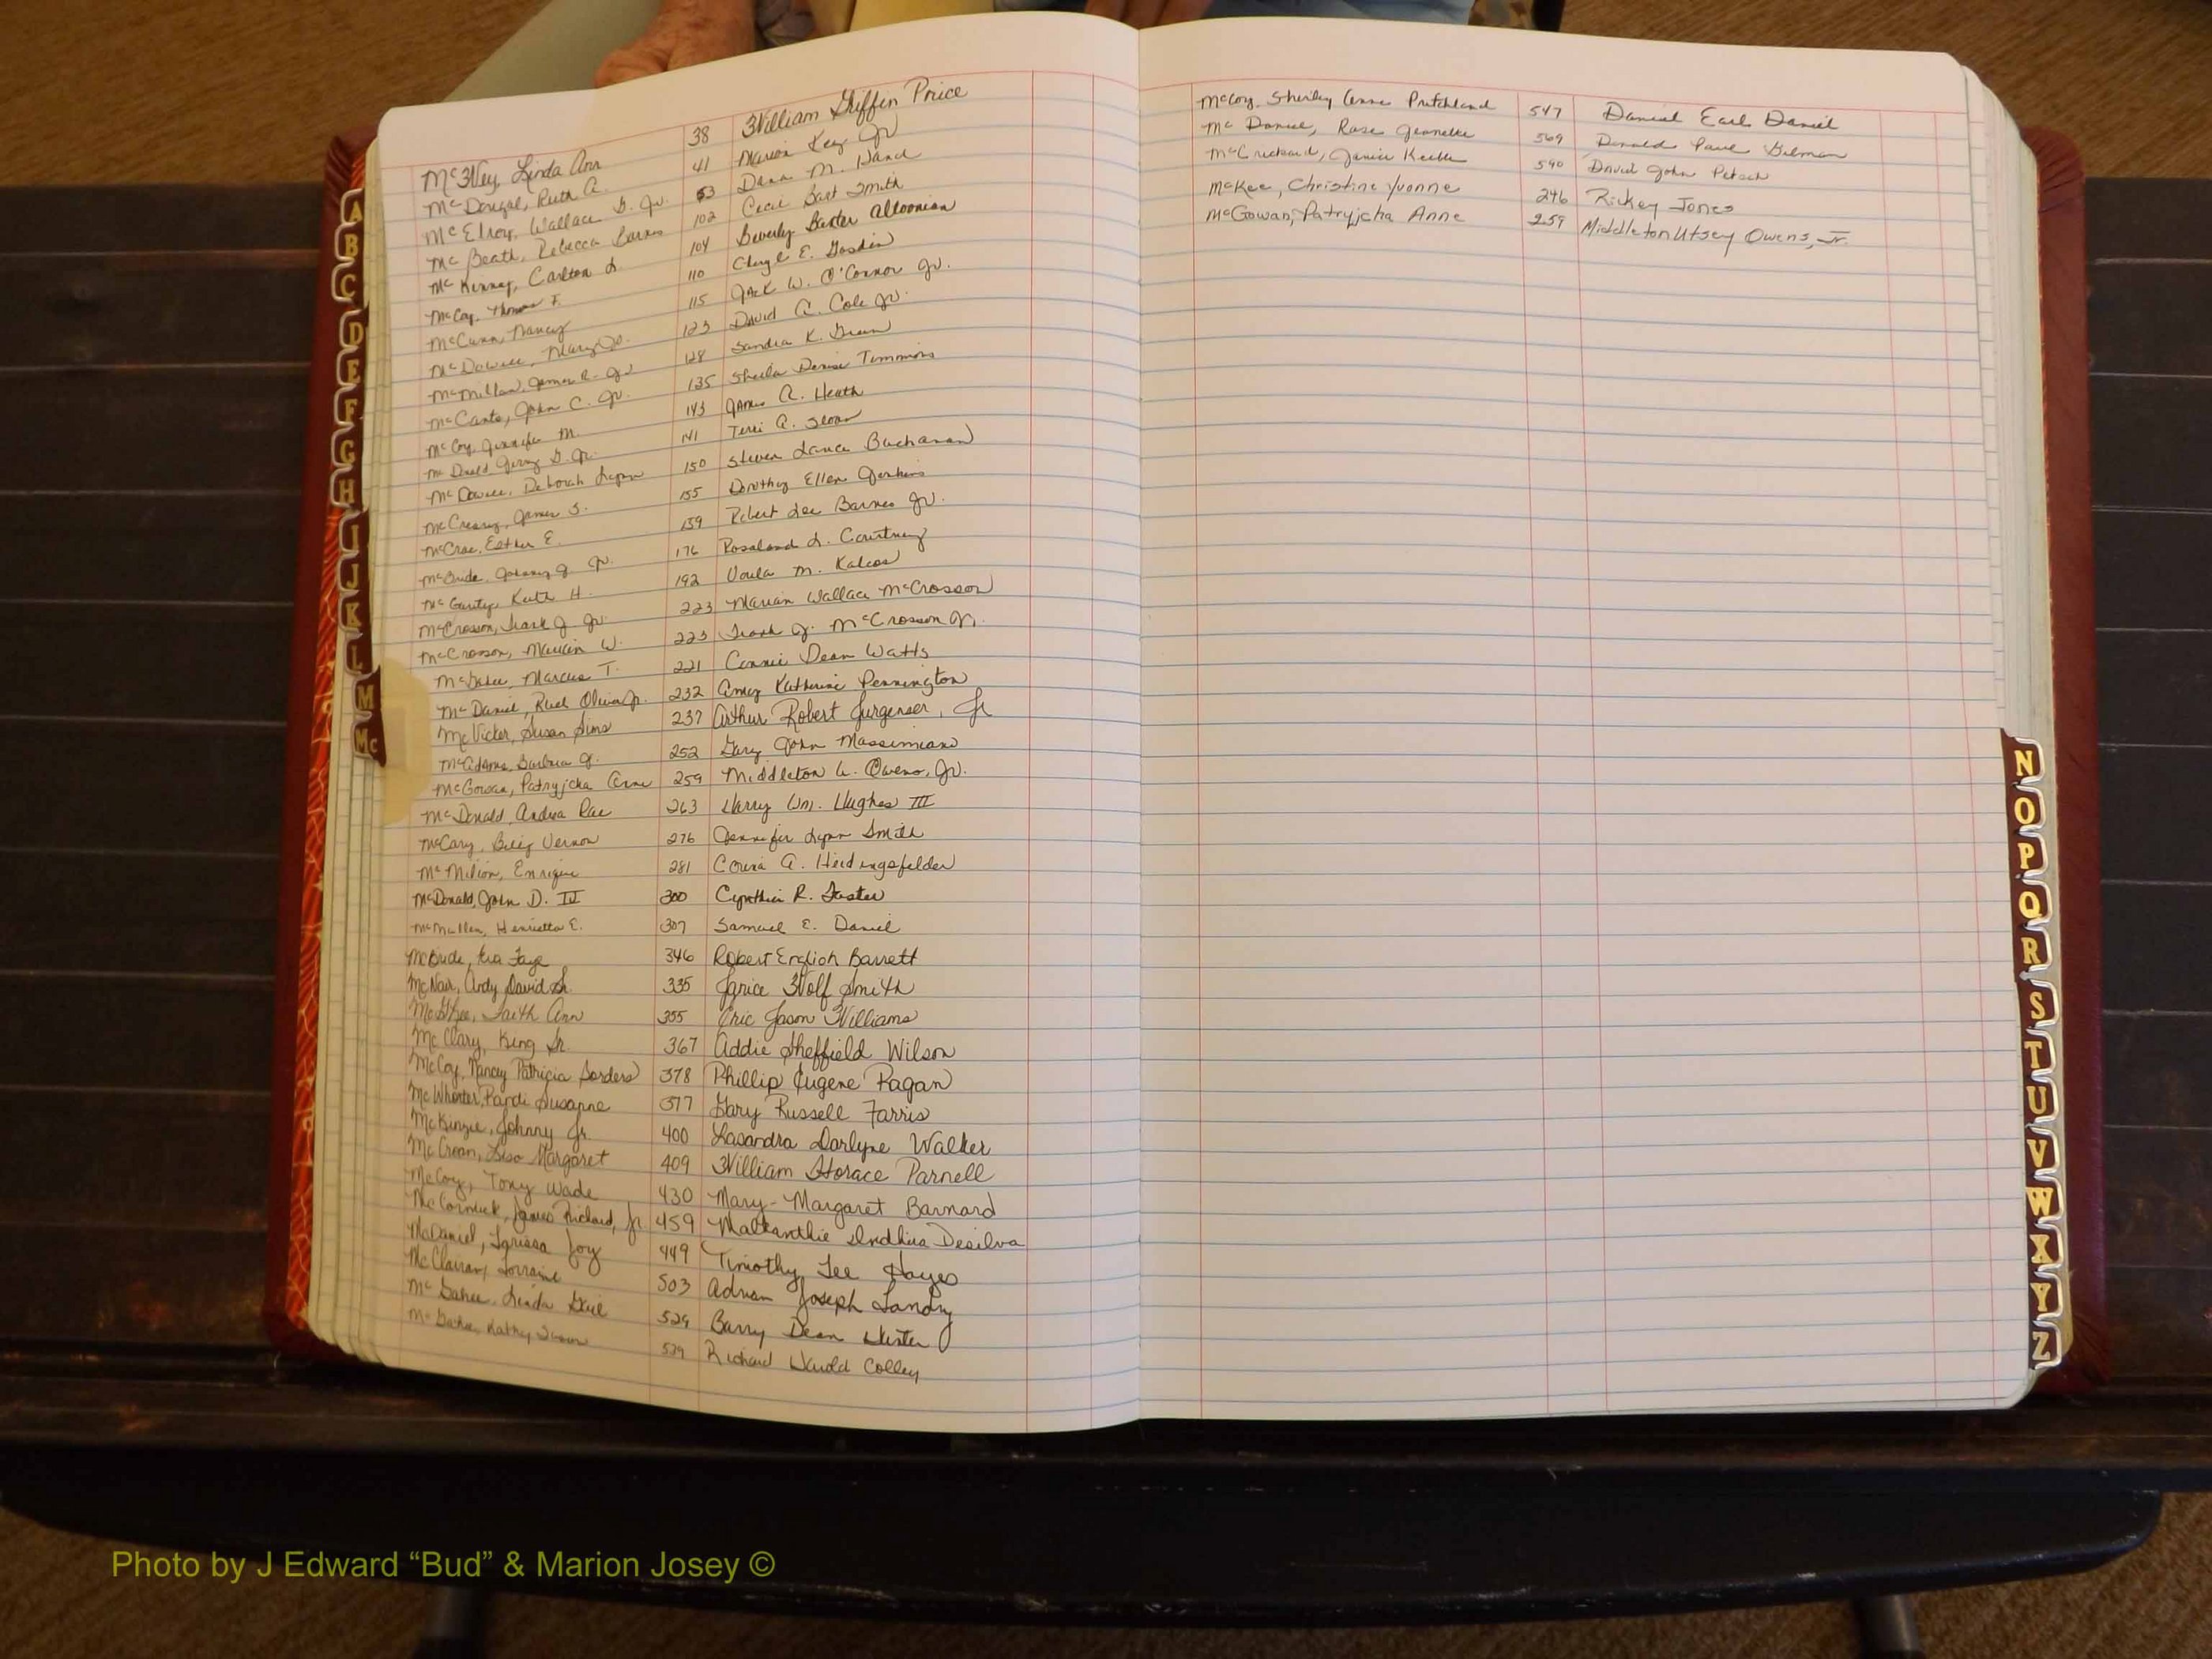 McWey, Linda Ann 38 William Griffin Price
McDougal, Ruth A. 41 Marion Key Jr
McElroy, Wallace G. Jr. 53 Dana M. Hand
McBeath, Rebecca Barnes 102 Cecil Bart Smith
McKenney, Carlton L. 104 Beverly Baxter Altoonian
McCoy, Thomas F. 110 Cheryl E. Gosdin
McCann, Nancy 115 Jack W. O'Connor Jr.
McDowell, Mary 123 David C. Cole Jr.
McMillan, James R. Jr 128 Sandra K.
McCants, John C. Jr. 135 Sheila Denise Timmons
McCoy, Jennifer M. 143 James A. Heath
McDonald, Jerry G. Jr. 141 Terri A. Sloan
McDowell, Deborah Lynn 150 Steven Lance Buchanan
McCreary, James S. 155 Dorothy Ellen Jenkins
McCrae, Esther E. 159 Robert Lee Barnes Jr.
McBride, Johnny J. Jr. 176 Rosaland L. Courtney
McGarity, Keith H. 192 Voula M. Kalcos
McCrosson, Frank J. Jr. 223 Marian Wallace McCrosson
McCrosson, Marian W. 223 Frank J. McCrosson Jr.
McGahee, Marcus T. 221 Connie Dean Watts
McDaniel, Rush Oliver Jr. 232 Amy Katherine Pennington
McVicker, Susan Sims 237 Arthur Robert Jurgensen, Jr
McAdams, Barbara J. 252 Gary John Massimiano
McGowan, Patryjcha Anne 259 Middleton U. Owens, Jr.
McDonald, Andrea Rae 263 Harry Wm. Hughes III
McCary, Billy Vernon 276 Jennifer Lynn Smith
McMilion, Enrique 281 A. Heidingsfelder
McDonald, John D. III 300 Cynthia R. Foster
McMullen, Henrietta E. 307 Samuel E. Daniel
McBride, Ira Faye 346 Robert English Barrett
McNair, Andy David Sr. 335 Janice Wolf Smith
McGhee, Faith Ann 355 Eric Jason Williams
McClary, King Sr. 367 Addie Sheffield Wilson
McCoy, Nancy Patricia Borders 378 Phillip Eugene Ragan
McWhorter, Pandi Susanne 377 Gary Russell Farris
McKinzie, Johnny Jr. 400 Lasandra Darlyne Walker
McCroan, Lisa Margaret 409 William Horace Parnell
McCoy, Tony Wade 430 Mary-Margaret Barnard
McCormick, James Richard, Jr 459 Malkanthie Indhira Desilva
McDaniel, Larissa Joy 449 Timothy Lee Hayes
McClairan, Lorraine 503 Adrian Joseph Landry
McGahee, Linda Gail 529 Barry Dean
McGahee, Kathy Susan 539 Richard Harold Colley
McCoy, Shirley Anne Pritchland 547 Daniel Earl Daniel
McDaniel, Rose Jeanette 569 Donald Paul Gilman
Janice Keible 590 David John Petsch
McKee, Christine Yvonne 246 Rickey Jones
McGowan, Patryjcha Anne 259 Middleton Utsey Owens, Jr.
A
B
C
D
E
F
G
H
I
J
K
L
M
Mc
N
O
P
Q
R
S
T
U
V
W
X
Y
Z
Photo by J Edward “Bud” & Marion Josey ©